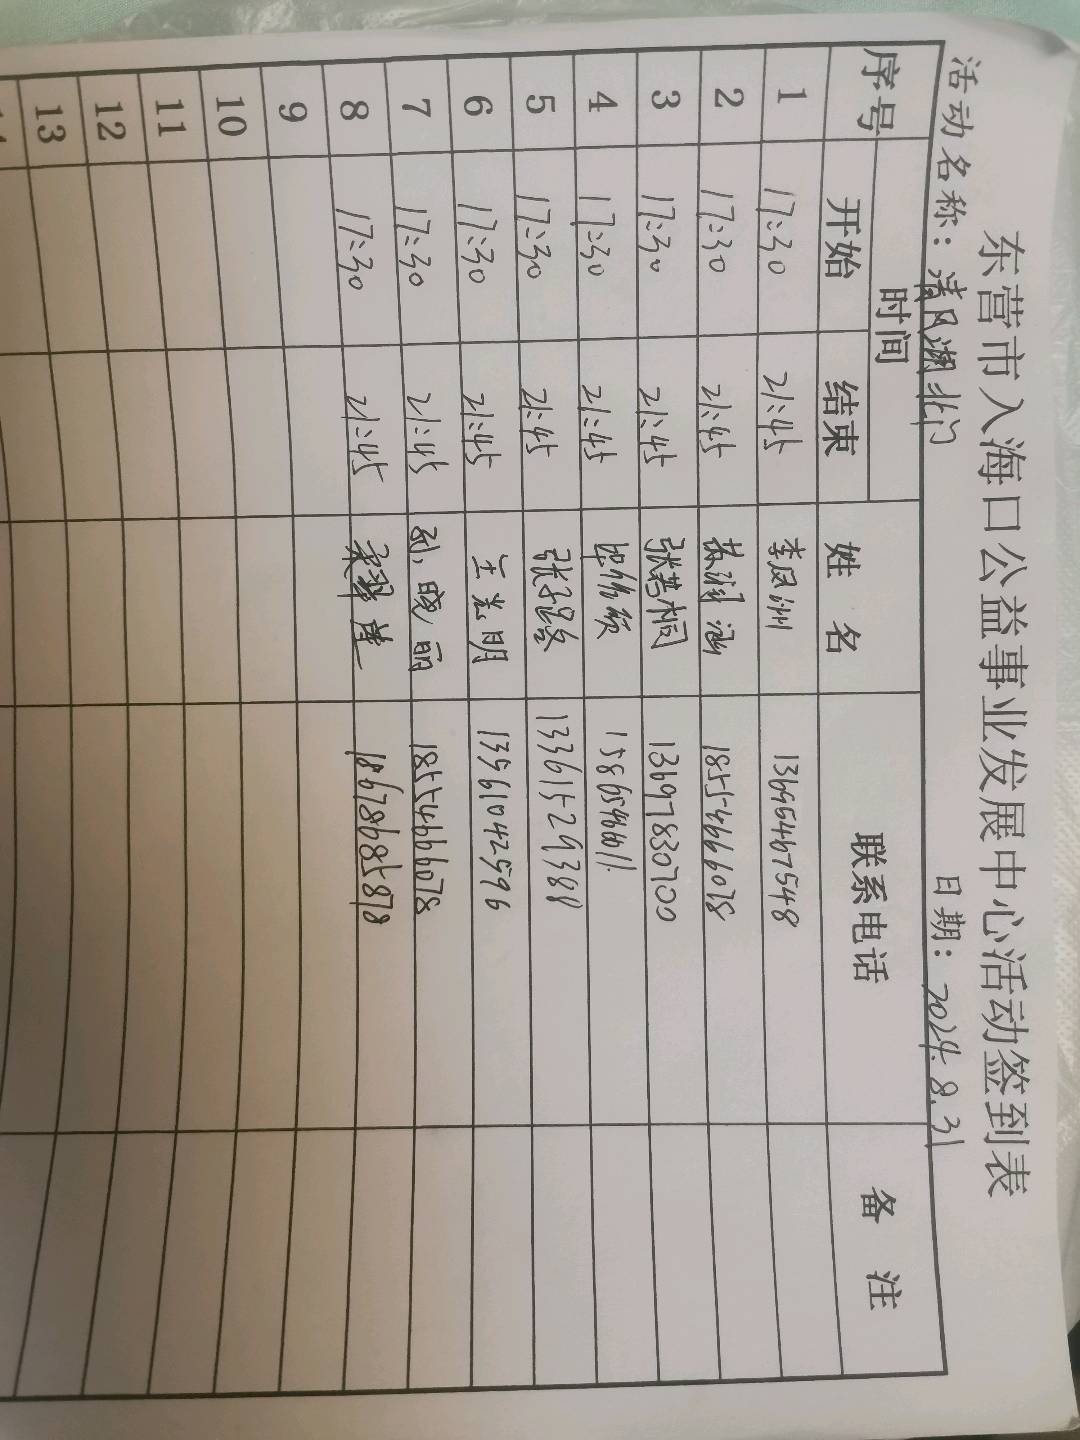 东营市入海口公益事业发展中心活动签到表
活动名称：清风湖北门 日期：2024.8.31
序号 时间 姓名 联系电话 备注
开始 结束
1 17:30 21:45 李凤洲 13695467548
2 17:30 21:45 苏润涵 18554666078
3 17:30 21:45 张若桐 13697830700
4 17:30 21:45
5 17:30 21:45 张子路 13361529388
6 17:30 21:45 王光明 13561042596
7 17:30 21:45 刘晓丽 18554666078
8 17:30 21:45 18678685878
9
10
11
12
13
14